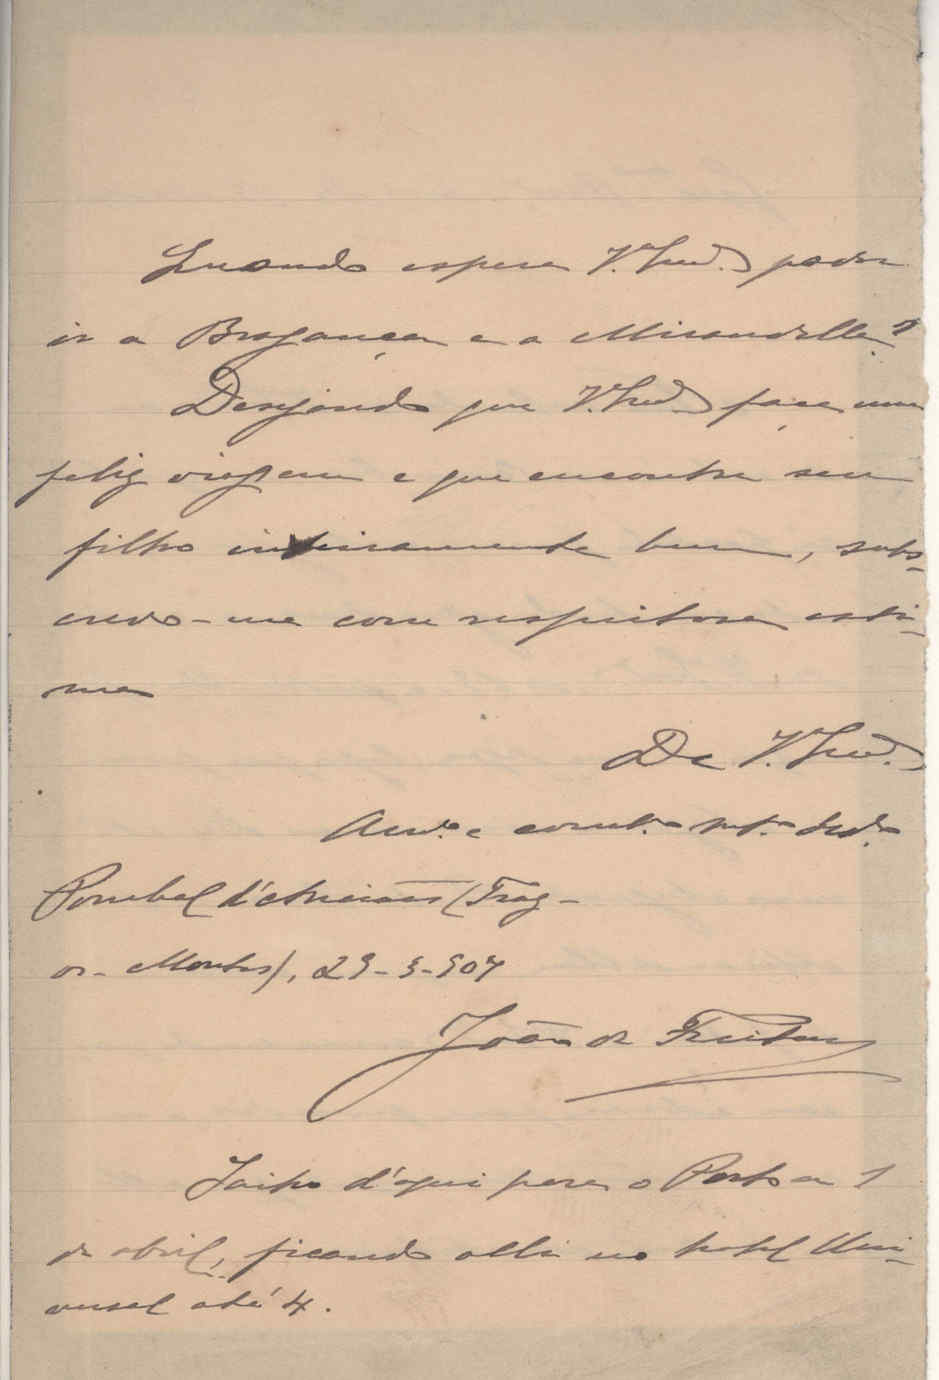 Quando espera V. Exª poder
ir a Bragança e a Mirandella?
Desejando que V. Exª faça uma
feliz viagem e que encontre seu
filho inteiramente bom, subs-
crevo-me com respeitosa esti-
ma
De V. Exª
Amº e corrº mtº dedº
Pombal d'Anciães (Traz-
os-Montes), 29-3-907
João de Freitas
Saiho d'aqui para o Porto a 1
de abril, ficando alli no hotel Uni-
versal até 4.